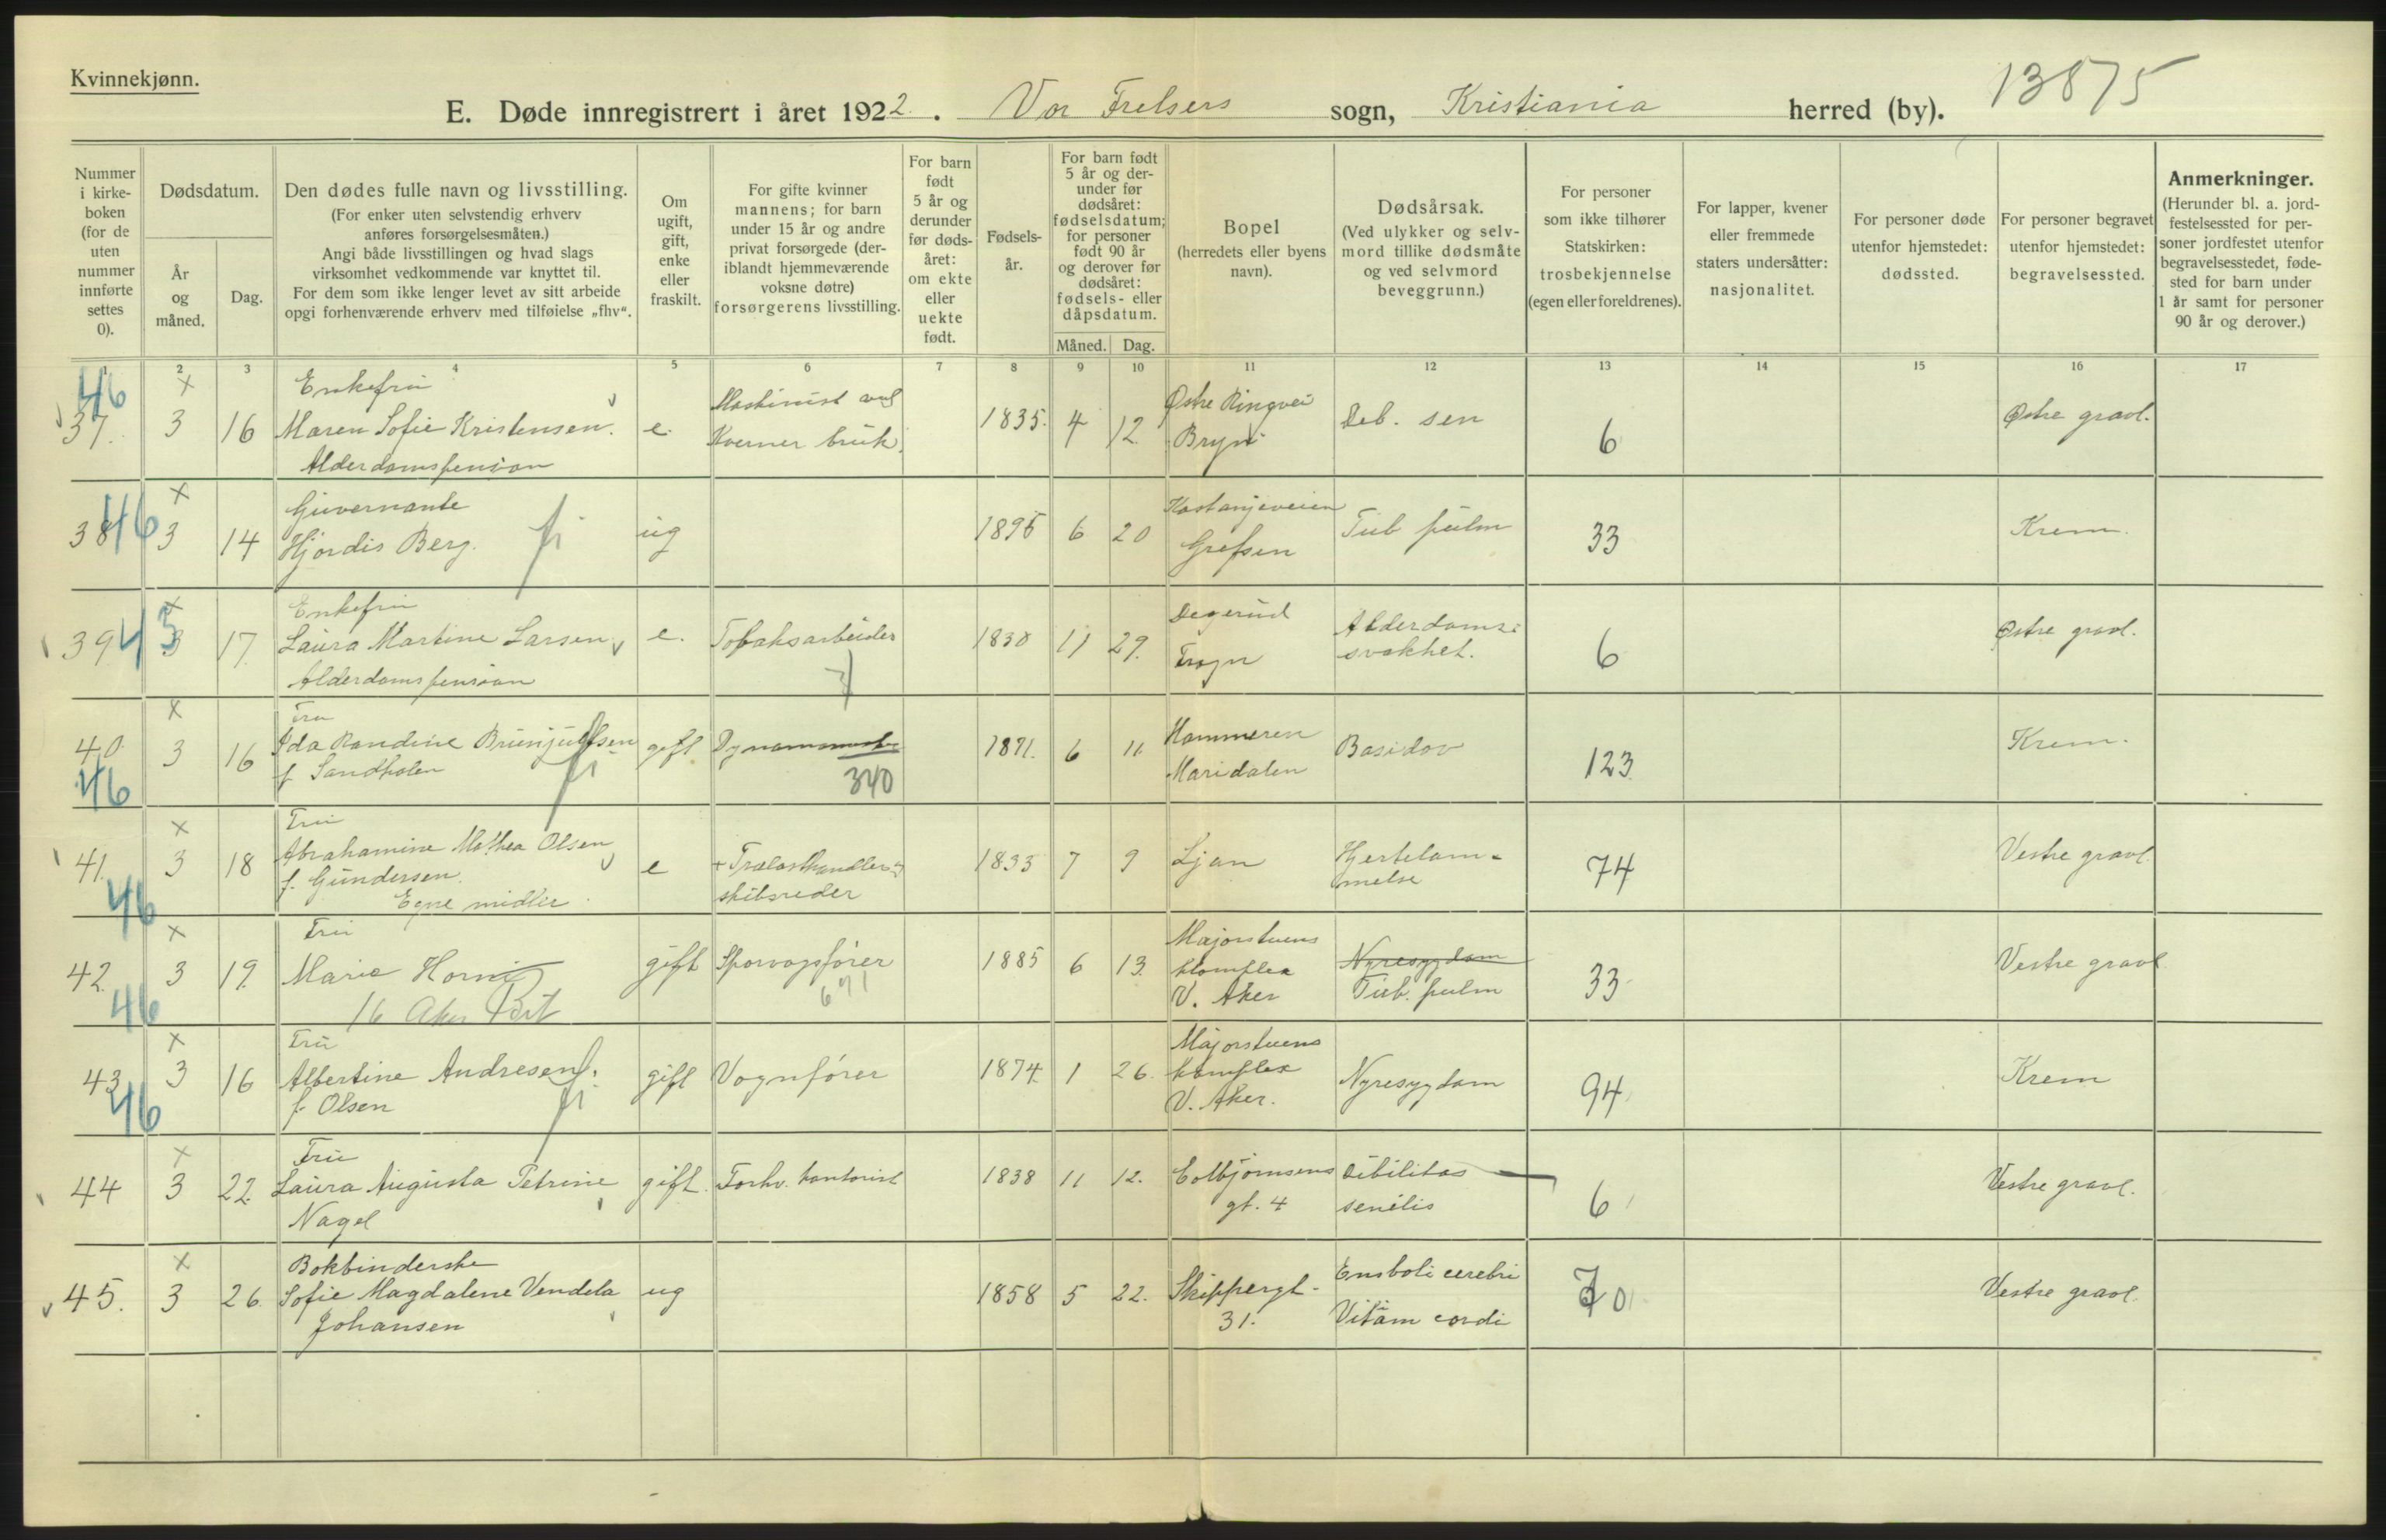 Kvinnekjønn.
E. Døde innregistrert i året 1922. Vor Frelsers sogn, Kristiania herred (by). 13875
Nummer i kirke-boken (for de uten nummer innførte settes 0).
Dødsdatum.
År og måned.
Dag.
Den dødes fulle navn og livsstilling.
(For enker uten selvstendig erhverv anføres forsørgelsesmåten.)
Angi både livsstillingen og hvad slags virksomhet vedkommende var knyttet til.
For dem som ikke lenger levet av sitt arbeide opgi forhenværende erhverv med tilføielse „fhv“.
Om ugift, gift, enke eller fraskilt.
For gifte kvinner mannens; for barn under 15 år og andre privat forsørgede (deriblandt hjemmeværende voksne døtre) forsørgerens livsstilling.
For barn født 5 år og derunder før dødsåret: om ekte eller uekte født.
Fødsels-år.
For barn født 5 år og derunder før dødsåret: fødselsdatum; for personer født 90 år og derover før dødsåret: fødsels- eller dåpsdatum.
Måned. Dag.
Bopel (herredets eller byens navn).
Dødsårsak.
(Ved ulykker og selvmord tillike dødsmåte og ved selvmord beveggrunn.)
For personer som ikke tilhører Statskirken: trosbekjennelse (egen eller foreldrenes).
For lapper, kvener eller fremmede staters undersåtter: nasjonalitet.
For personer døde utenfor hjemstedet: dødssted.
For personer begravet utenfor hjemstedet: begravelsessted.
Anmerkninger.
(Herunder bl. a. jordfestelsessted for personer jordfestet utenfor begravelsesstedet, fødested for barn under 1 år samt for personer 90 år og derover.)
1 2 3 4 5 6 7 8 9 10 11 12 13 14 15 16 17
46 x Enkefru Maskinist ved Østre Ringvei
37. 3 16 Maren Sofie Kristensen. e. Kverner bruk. 1835. 4 12. Bryn Deb. sen 6 Østre gravl.
Alderdomspension
46 x Guvernante Kastanjeveien
38 3 14 Hjördis Berg. fi ug 1895 6 20 Grefsen Tub pulm 33 Krem.
45 x Enkefru Degerud Alderdoms-
39 3 17. Laura Martine Larsen e. Tobaksarbeider 1830 11 29. Frogn svakhet. 6 Østre gravl.
Alderdomspension
x Fru Hammeren
40 3 16 Ida Randine gift 1871. 6 11 Maridalen Basedow 123 Krem.
46 f Sandholen fi 340
x Fru
41. 3 18 Abrahamine Mathea Olsen e + Trælasthandler 1833 7 9 Ljan Hjertelam- 74 Vestre gravl.
46 f. Gundersen. skibsreder melse
Egne midler
x Fru Majorstuens
42. 3 19. Marie gift Sporvognsfører 1885 6 13. komplex Nyresygdom 33 Vestre gravl
46 16 Aker 671 V. Aker Tub. pulm
x Fru Majorstuens
43 3 16 Albertine Andresen. gift Vognfører 1874. 1 26. komplex Nyresygdom 94 Krem
46 f. Olsen fi V. Aker.
x Fru
44 3 22. Laura Augusta Petrine gift. Forhv. kontorist 1838 11 12. Colbjørnsens Debilitas 6 Vestre gravl.
Nagel gt. 4 senilis
x Bokbinderske Emboli cerebri
45. 3 26. Sofie Magdalene Vendela ug 1858 5 22. Skippergt. 70 Vestre gravl.
Johansen 31. Vitium cordi